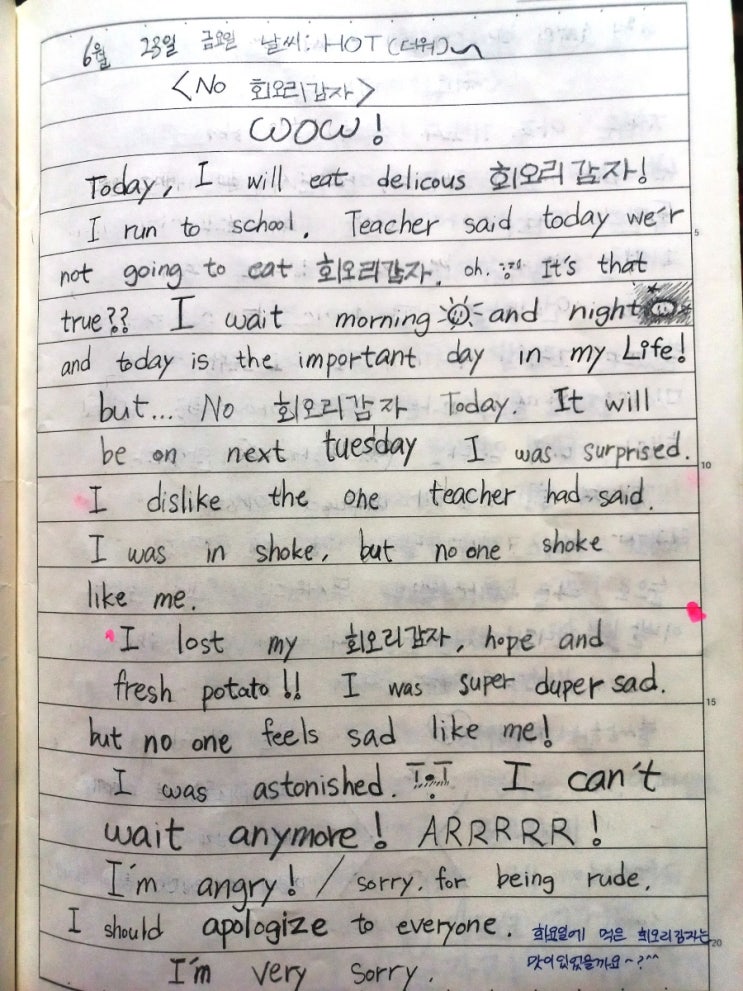 6월 23일 금요일 날씨: HOT (더워)
<No 회오리감자>
WOW!
Today, I will eat delicous 회오리감자!
I run to school. Teacher said today we'r
not going to eat 회오리감자. oh. It's that
true?? I wait morning and night
and today is the important day in my Life!
but... No 회오리감자 Today. It will
be on next tuesday I was surprised.
I dislike the one teacher had said.
I was in shoke, but no one shoke
like me.
I lost my 회오리감자, hope and
fresh potato!! I was super duper sad.
but no one feels sad like me!
I was astonished. T.T I can't
wait anymore! ARRRRR!
I'm angry! / sorry. for being rude.
I should apologize to everyone.
I'm very sorry.
화요일에 먹은 회오리감자는
맛이있었을까요~?^^
5
10
15
20